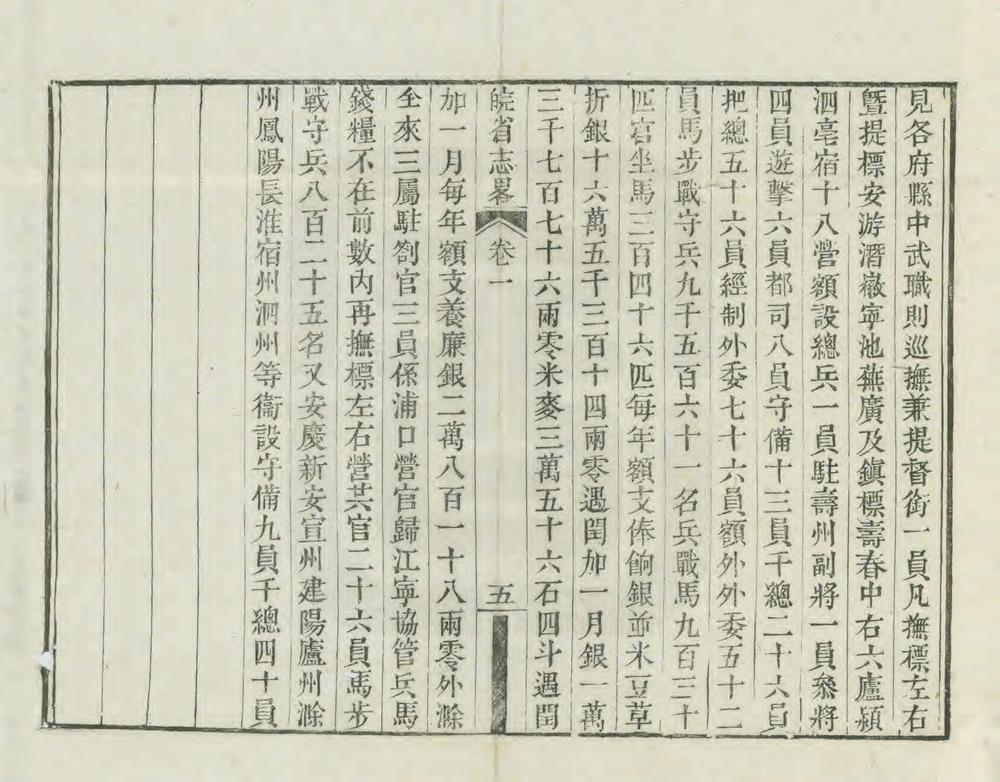 見各府縣中武職則巡撫兼提督銜一員凡撫標左右
暨提標安游潛徽寧池蕪廣及鎭標壽春中右六廬潁
泗亳宿十八營額設總兵一員駐壽州副將一員叅將
四員遊擊六員都司八員守備十三員千總二十六員
把總五十六員經制外委七十六員額外外委五十二
員馬步戰守兵九千五百六十一名兵戰馬九百三十
匹官坐馬三百四十六匹每年額支俸餉銀並米豆草
折銀十六萬五千三百十四兩零遇閏加一月銀一萬
三千七百七十六兩零米麥三萬五十六石四斗遇閏
皖省志畧 卷一 五
加一月每年額支養廉銀二萬八百一十八兩零外滁
全來三屬駐劄官三員係浦口營官歸江寧協管兵馬
錢糧不在前數內再撫標左右營共官二十六員馬步
戰守兵八百二十五名又安慶新安宣州建陽廬州滁
州鳳陽長淮宿州泗州等衞設守備九員千總四十員